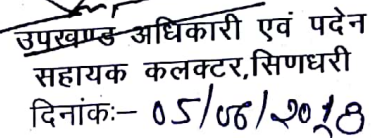 उपखण्ड अधिकारी एवं पदेन
सहायक कलक्टर,सिणधरी
दिनांकः– 05/06/2018